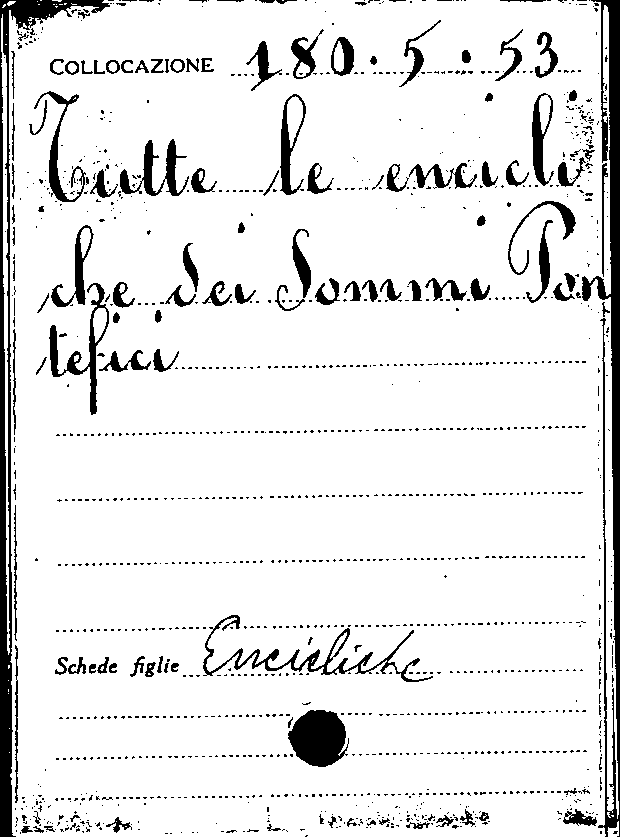 COLLOCAZIONE 180.5.53
Tutte le encicli
che dei Sommi Pon
tefici
Schede figlie Encicliche